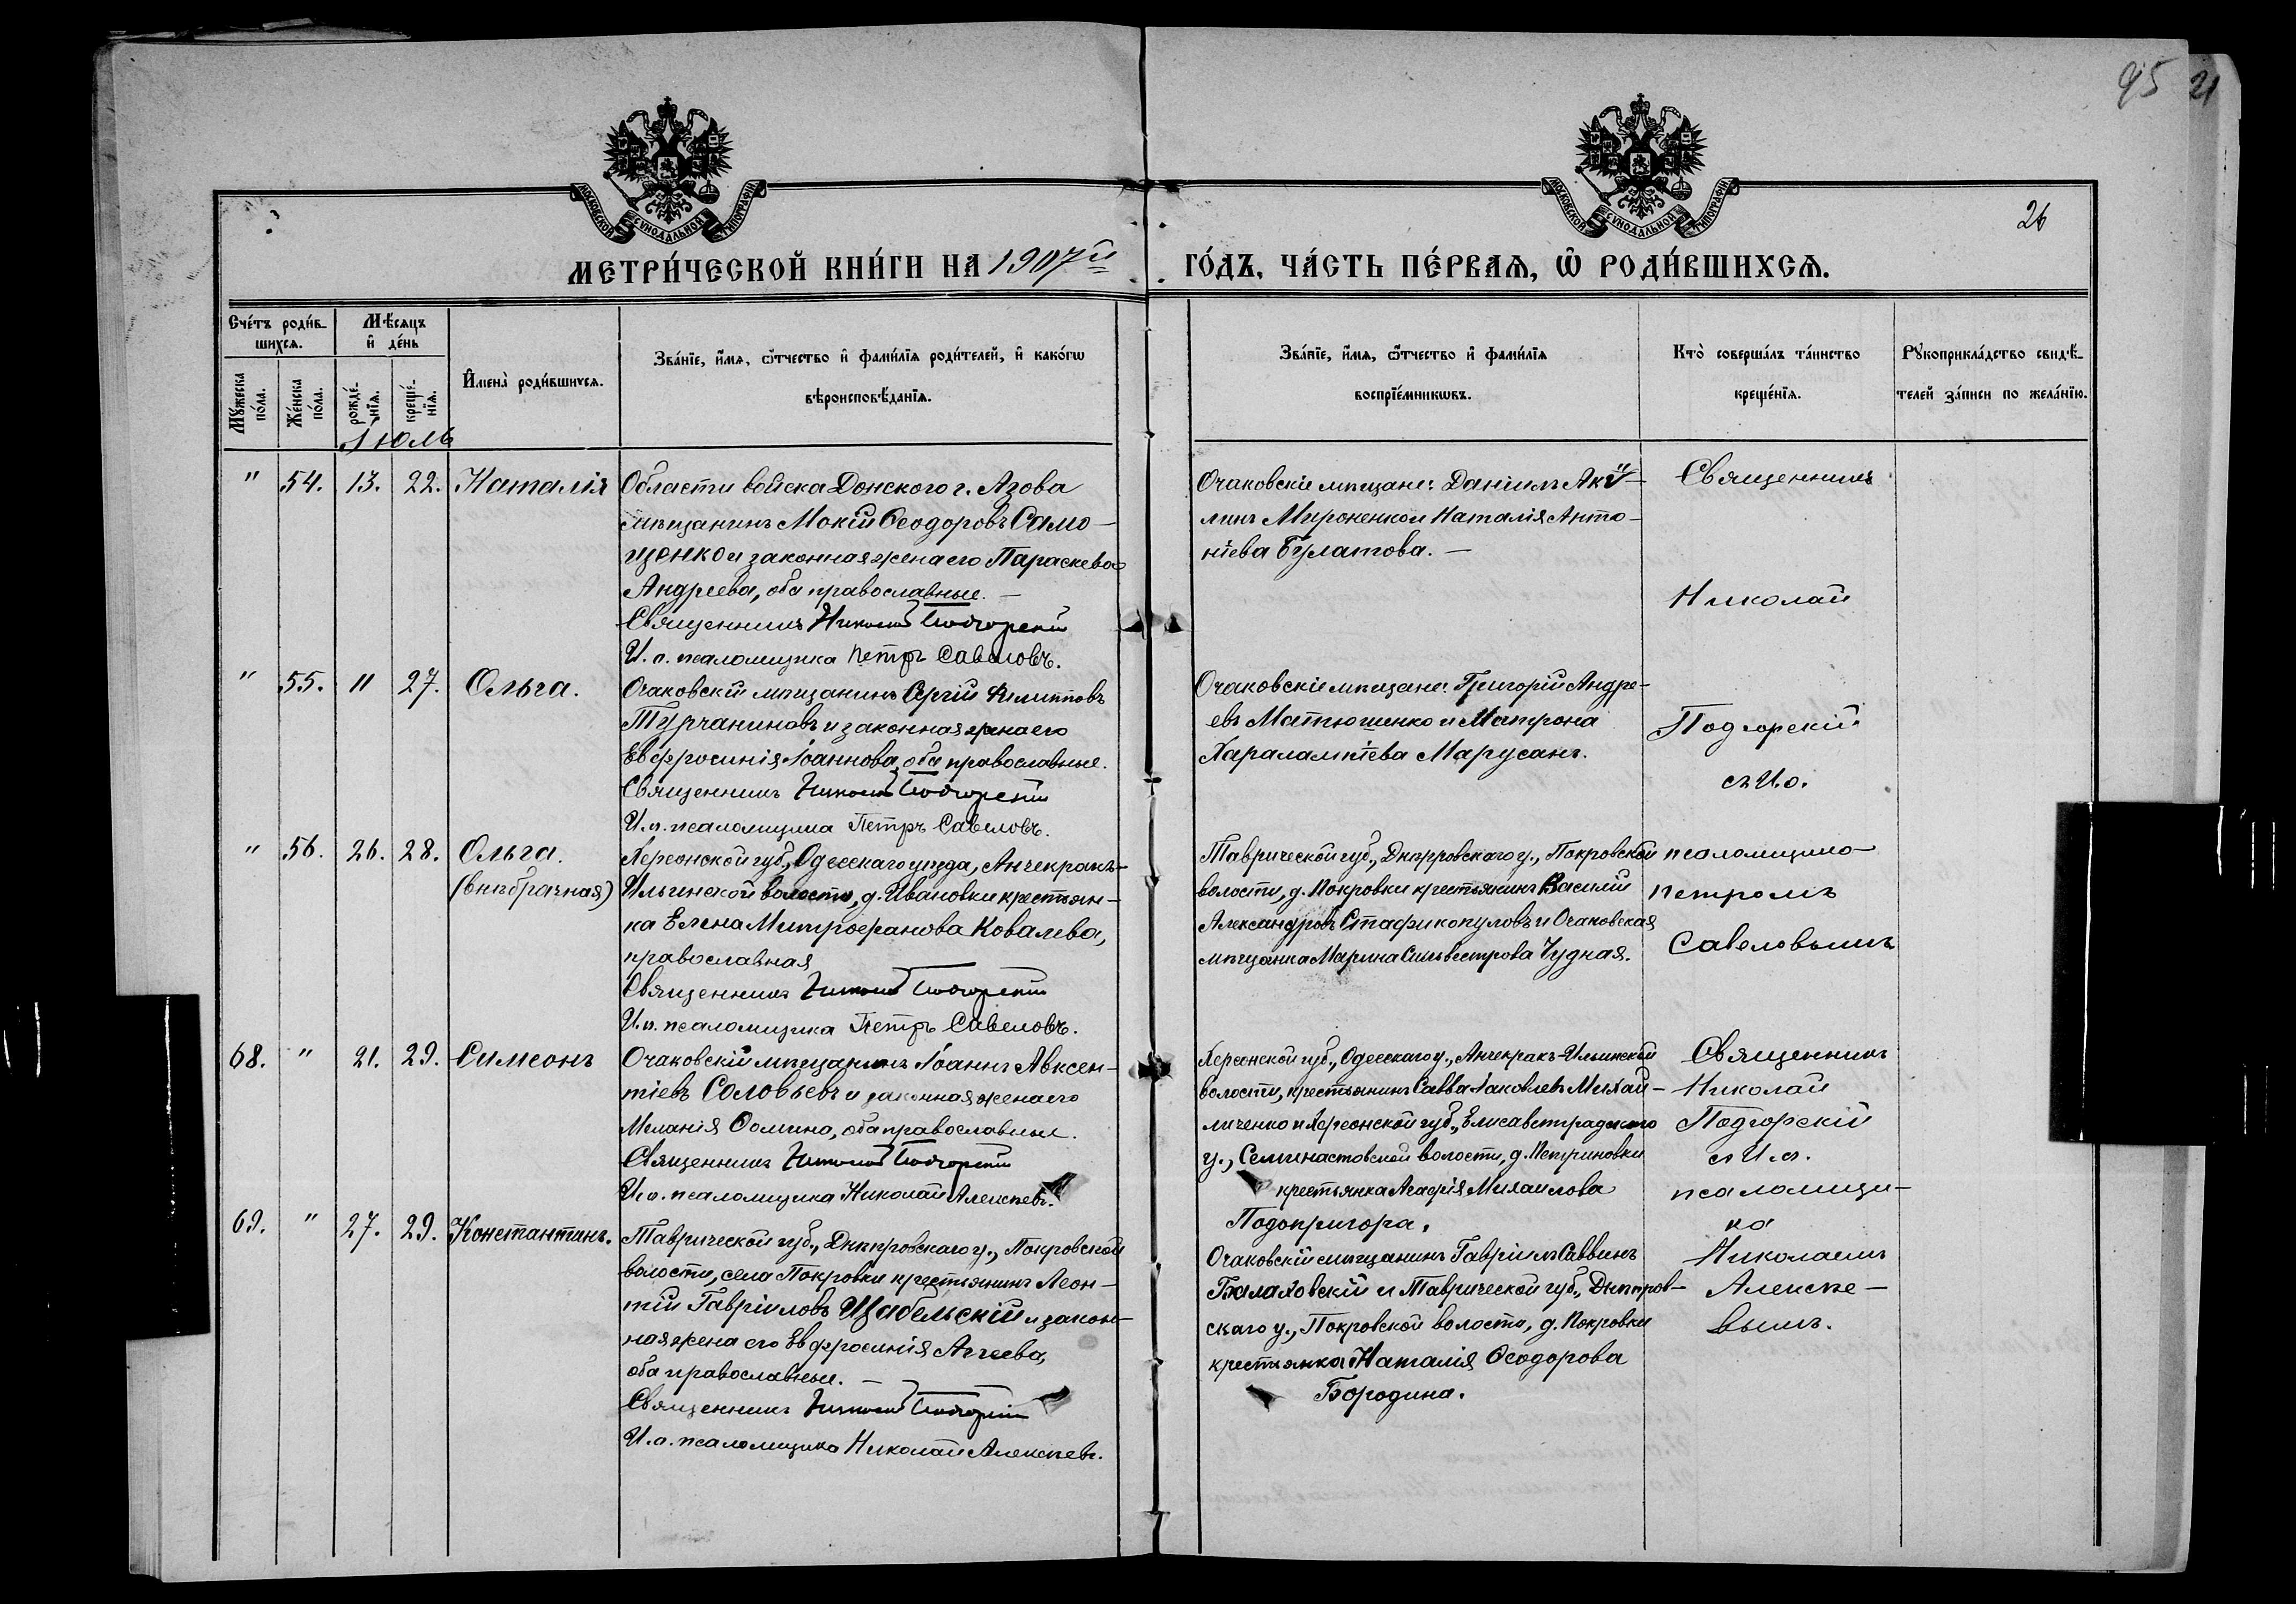 95 21
МОСКОВСКОЙ СѴНОДАЛЬНОЙ ТИПОГРАФІИ
МОСКОВСКОЙ СѴНОДАЛЬНОЙ ТИПОГРАФІИ
26
МЕТРИ́ЧЕСКОЙ КНИ́ГИ НА 1907й ГО́ДЪ, ЧА́СТЬ ПЕ́РВАЯ, Ѡ РОДИ́ВШИХСЯ.
Сче́тъ роди́в-
шихся.
Мѣсяцъ
и҆ де́нь
Мꙋ́жеска
по́ла.
Же́нска
по́ла.
рожде́-
нїя.
креще́-
нїя.
И҆мена̀ роди́вшихся.
Зва́нїе, и҆́мя, ѻ҆́тчество и҆ фами́лїя роди́телей, и҆ како́гѡ
вѣроисповѣ́данїя.
Зва́нїе, и҆́мя, ѻ҆́тчество и҆ фами́лїя
воспрїе́мникѡвъ.
Кто̀ соверша́лъ та́инство
креще́нїя.
Рꙋкоприкла́дство свидѣ́-
телей за́писи по жела́нїю.
Іюль
" 54. 13. 22. Наталія
Области войска Донского г. Азова
мѣщанинъ Мокій Ѳеодоровъ Само-
щенко и законная жена его Параскева
Андреева, оба православные. —
Священникъ Николай Подгорскій
И. о. псаломщика Петръ Савеловъ.
Очаковскіе мѣщане: Даніилъ Аки-
линъ Мироненко и Наталія Анто-
ніева Булатова. —
Священникъ
Николай
" 55. 11 27. Ольга.
Очаковскій мѣщанинъ Сергій Филипповъ
Турчаниновъ и законная жена его
Евфросинія Іоаннова, оба православные.
Священникъ Николай Подгорскій
И. о. псаломщика Петръ Савеловъ.
Очаковскіе мѣщане: Григорій Андре-
евъ Матюшенко и Матрона
Харалампіева Марусанъ.
Подгорскій
съ И. о.
" 56. 26. 28. Ольга.
(внѣбрачная)
Херсонской губ., Одесскаго уѣзда, Анчекракъ-
Ильинской волости, д. Ивановки крестьян-
ка Елена Митрофанова Ковалева,
православная
Священникъ Николай Подгорскій
И. о. псаломщика Петръ Савеловъ.
Таврической губ., Днѣпровскаго у., Покровской
волости, д. Покровки крестьянинъ Василій
Александровъ Стафикопуловъ и Очаковская
мѣщанка Марина Сильвестрова Чудная.
псаломщика
Петромъ
Савеловымъ
68. " 21. 29. Симеонъ
Очаковскій мѣщанинъ Іоаннъ Авксен-
тіевъ Соловьевъ и законная жена его
Меланія Ѳомина, оба православные.
Священникъ Николай Подгорскій
И. о. псаломщика Николай Алексѣевъ.
Херсонской губ., Одесскаго у., Анчекракъ-Ильинской
волости, крестьянинъ Савва Іаковлевъ Михай-
личенко и Херсонской губ., Елисаветградскаго
у., Семенастовской волости, д. Петриновки
крестьянка Агафія Михаилова
Подопригора.
Священникъ
Николай
Подгорскій
съ И. о.
псаломщи-
ка
69. " 27. 29. Константинъ.
Таврической губ., Днѣпровскаго у., Покровской
волости, села Покровки крестьянинъ Леон-
тій Гавріиловъ Щабельскій и закон-
ная жена его Евфросинія Аггеева,
оба православные. —
Священникъ Николай Подгорскій
И. о. псаломщика Николай Алексѣевъ.
Очаковскій мѣщанинъ Гавріилъ Саввинъ
Балаховскій и Таврической губ., Днѣпров-
скаго у., Покровской волости, д. Покровки
крестьянка Наталія Ѳеодорова
Бородина.
Николаемъ
Алексѣе-
вымъ.